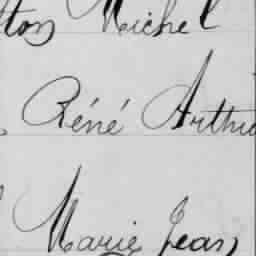 ton Michel
Réné Arthu
Marie Jean